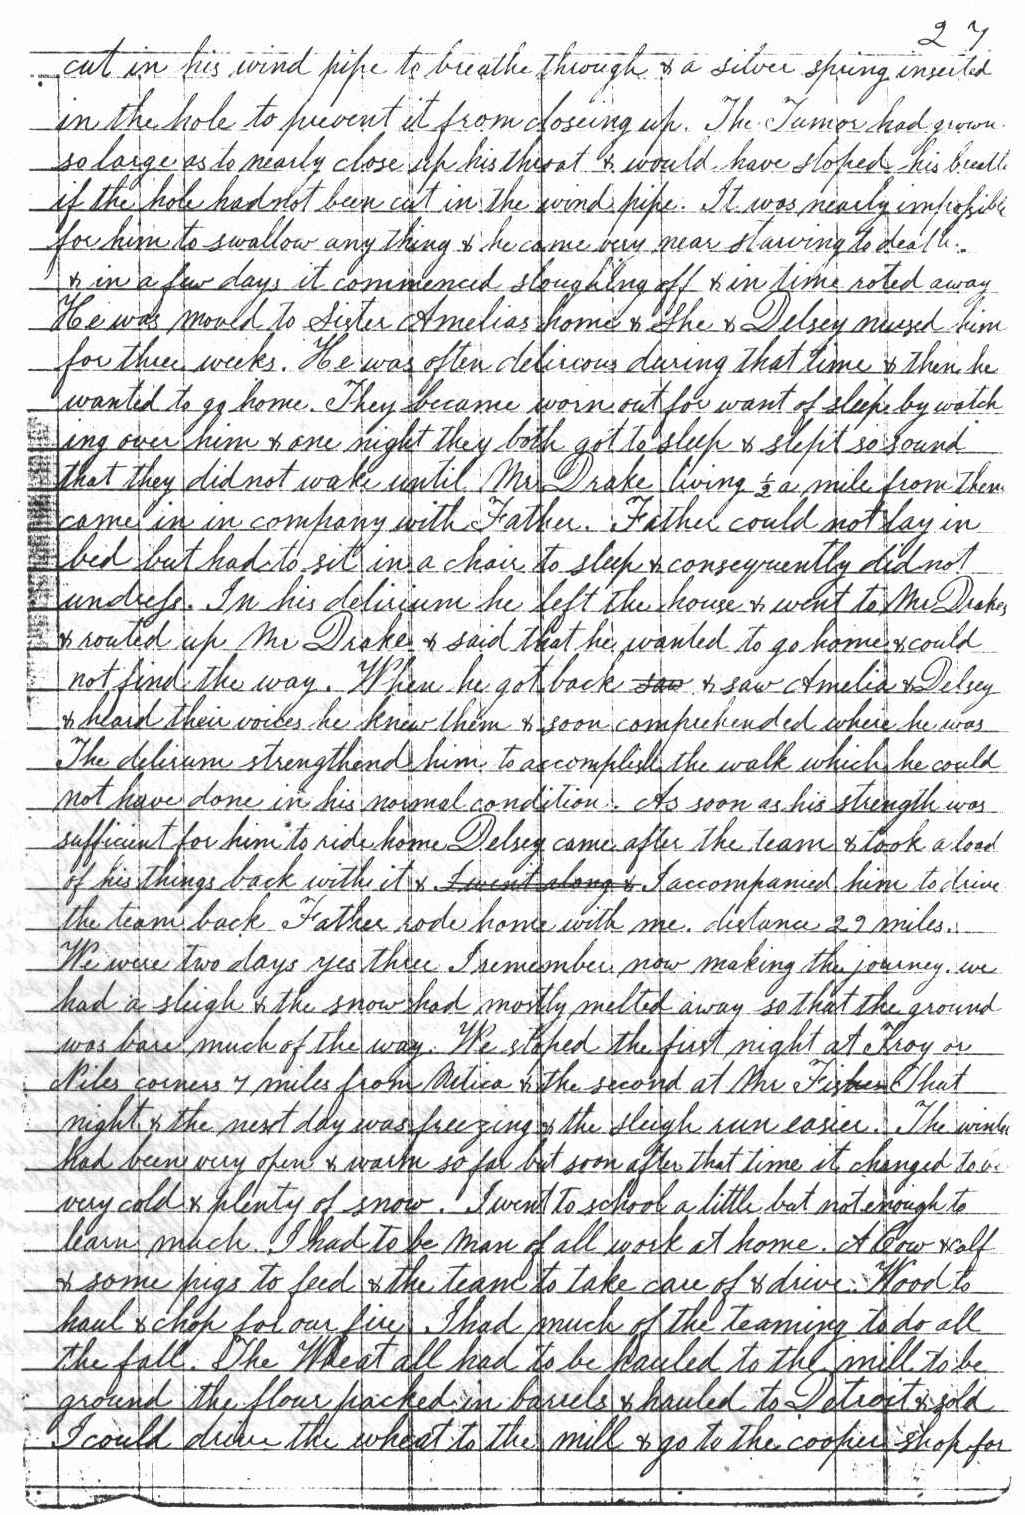 27
cut in his wind pipe to breathe through & a silver spring inserted
in the hole to prevent it from closeing up. The Tumor had grown
so large as to nearly close up his throat & would have stoped his breath
if the hole had not been cut in the wind pipe. It was nearly impossible
for him to swallow any thing & he came very near starving to death.
& in a few days it commenced sloughing off & in time roted away
He was moved to Sister Amelias home & She & Delsey nursed him
for three weeks. He was often delirious during that time & then he
wanted to go home. They became worn out for want of sleep by watch
ing over him & one night they both got to sleep & slept so sound
that they did not wake until Mr Drake living ½ a mile from them
came in in company with Father. Father could not lay in
bed but had to sit in a chair to sleep & consequently did not
undress. In his delirium he left the house & went to Mr Drakes
& routed up Mr Drake & said that he wanted to go home & could
not find the way. When he got back saw & saw Amelia & Delsey
& heard their voices he knew them & soon comprehended where he was
The delirium strengthend him to accomplish the walk which he could
not have done in his normal condition. As soon as his strength was
sufficient for him to ride home Delsey came after the team & took a load
of his things back with it & I went along & I accompanied him to drive
the team back Father rode home with me. distance 29 miles.
We were two days yes three I remember now making the journey. we
had a sleigh & the snow had mostly melted away so that the ground
was bare much of the way. We stoped the first night at Troy or
Niles corners 7 miles from Utica & the second at Mr Fisher That
night & the next day was freezing & the sleigh run easier. The winter
had been very open & warm so far but soon after that time it changed to
very cold & plenty of snow. I went to school a little but not enough to
learn much. I had to be man of all work at home. A Cow & calf
& some pigs to feed & the team to take care of & drive. Wood to
haul & chop for our fire. I had much of the teaming to do all
the fall. The Wheat all had to be hauled to the mill to be
ground the flour packed in barrels & hauled to Detroit & sold
I could drive the wheat to the mill & go to the cooper shop for